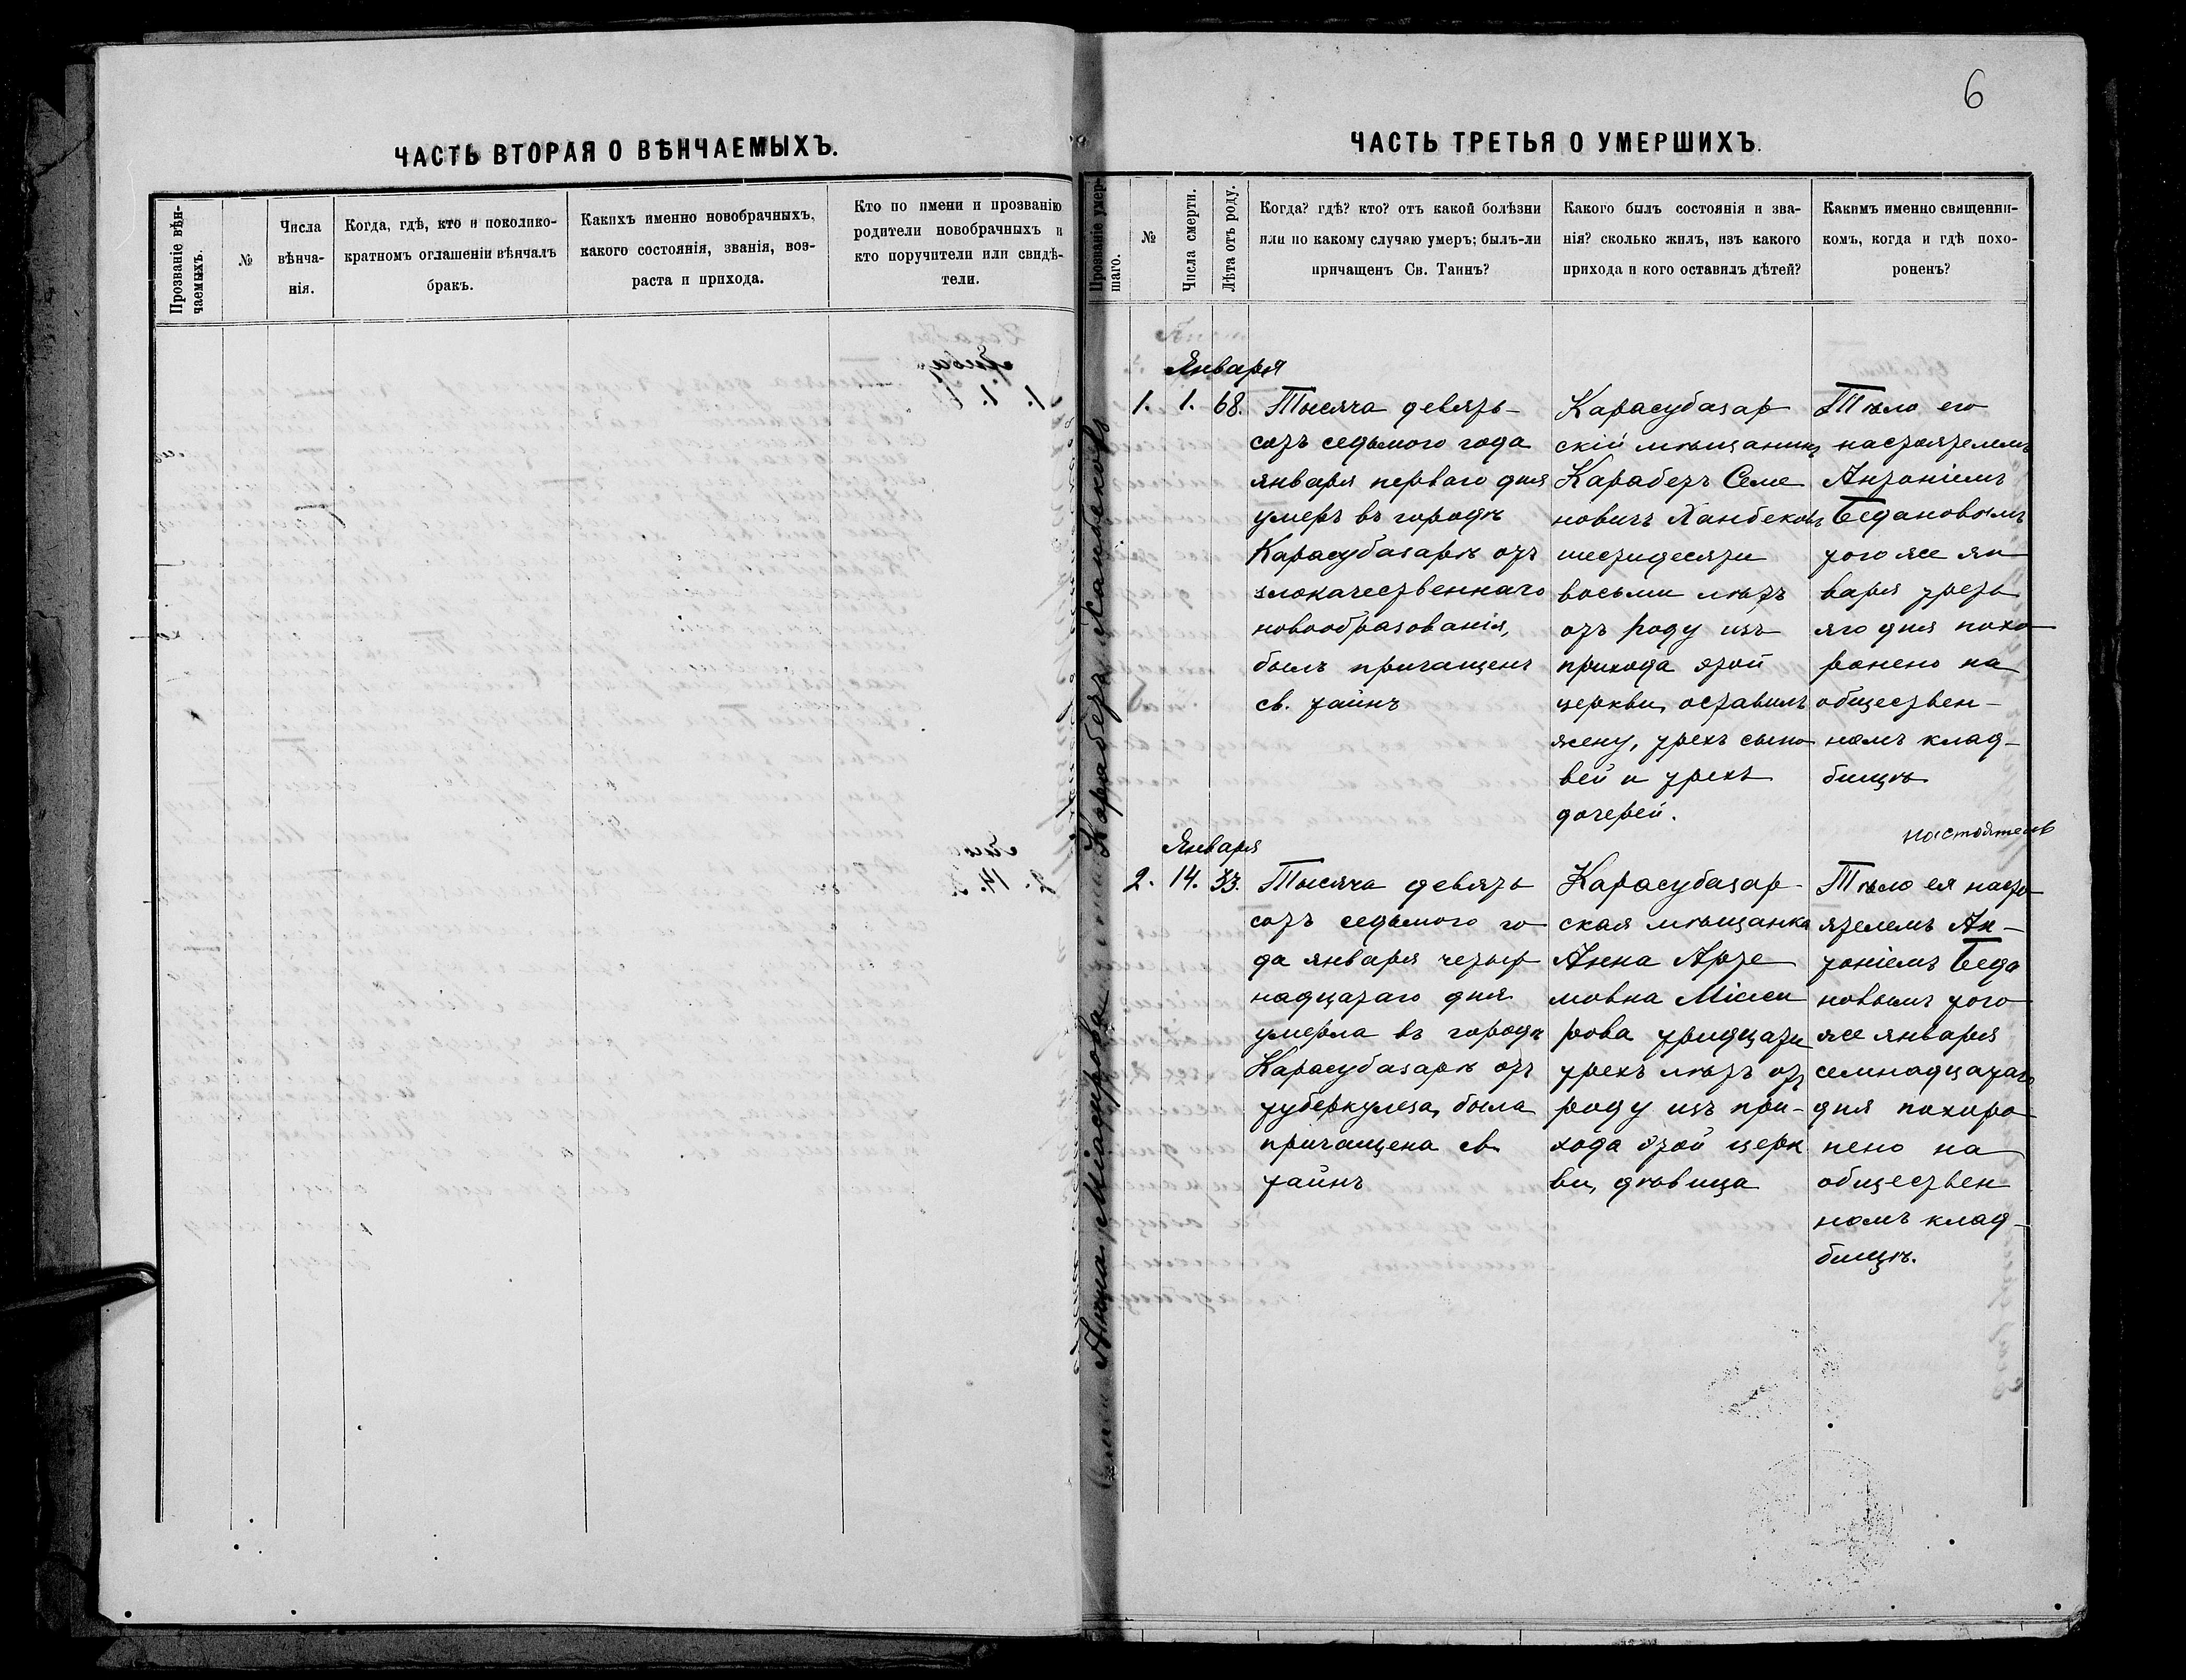 6
ЧАСТЬ ВТОРАЯ О ВѢНЧАЕМЫХЪ.
Прозваніе вѣн-
чаемыхъ.
№
Числа
вѣнча-
нія.
Когда, гдѣ, кто и поколико-
кратномъ оглашеніи вѣнчалъ
бракъ.
Какихъ именно новобрачныхъ,
какого состоянія, званія, воз-
раста и прихода.
Кто по имени и прозванію
родители новобрачныхъ и
кто поручители или свидѣ-
тели.
ЧАСТЬ ТРЕТЬЯ О УМЕРШИХЪ.
Прозваніе умер-
шаго.
№
Числа смерти.
Лѣта отъ роду.
Когда? гдѣ? кто? отъ какой болѣзни
или по какому случаю умеръ; былъ-ли
причащенъ Св. Таинъ?
Какого былъ состоянія и зва-
нія? сколько жилъ, изъ какого
прихода и кого оставилъ дѣтей?
Какимъ именно священни-
комъ, когда и гдѣ похо-
роненъ?
Карабетъ Ханбековъ
Января
1. 1. 68.
Тысяча девять-
сотъ седьмого года
января перваго дня
умеръ въ городѣ
Карасубазарѣ отъ
злокачественнаго
новообразованія,
былъ причащенъ
св. тайнъ
Карасубазар
скій мѣщанинъ
Карабетъ Семе
новичъ Ханбековъ
шестидесяти
восьми лѣтъ
отъ роду изъ
прихода этой
церкви, оставилъ
жену, трехъ сыно
вей и трехъ
дочерей.
Тѣло его
настоятелемъ
Антоніемъ
Бедановымъ
того же ян
варя треть
яго дня похо
ронено на
обществен-
номъ клад-
бищѣ
Анна Міасирова
Января
2. 14. 33.
Тысяча девять
сотъ седьмого го
да января четыр
надцатаго дня
умерла въ городѣ
Карасубазарѣ отъ
туберкулеза, была
причащена св.
тайнъ
Карасубазар-
ская мѣщанка
Анна Арте
мовна Міаси
рова тридцати
трехъ лѣтъ отъ
роду изъ при-
хода этой церк
ви, дѣвица
настоятелъ
Тѣло ея насто
ятелемъ Ан-
тоніемъ Беда
новымъ того
же января
семнадцатаго
дня похоро
нено на
обществен
номъ клад-
бищѣ.